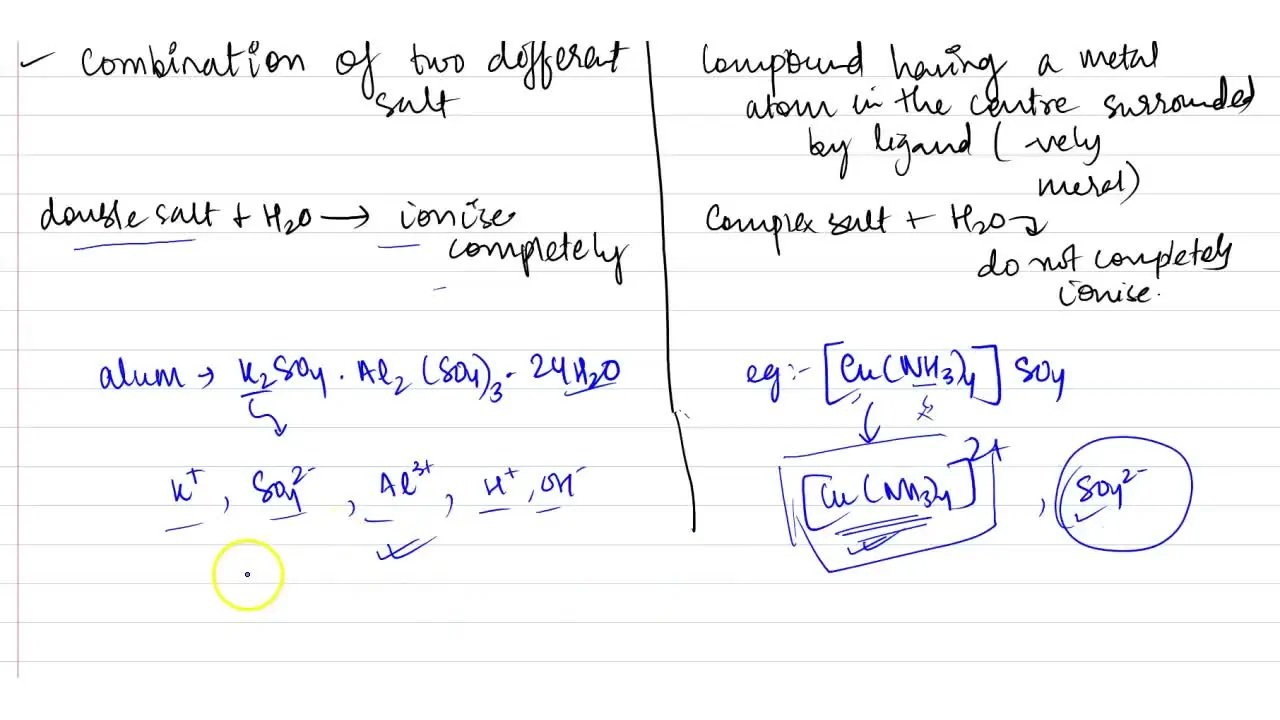 Combination of two different
salt
double salt + H2O → ionise
completely
alum → K2SO4 . Al2(SO4)3 . 24H2O
K+, SO4 2-, Al3+, H+, OH-
Compound having a metal
atom in the centre surrounded
by ligand (
Complex salt + H2O
do not completely
ionise.
eg:- [Cu(NH3)4] SO4
[Cu(NH3)4]2+, SO4 2-